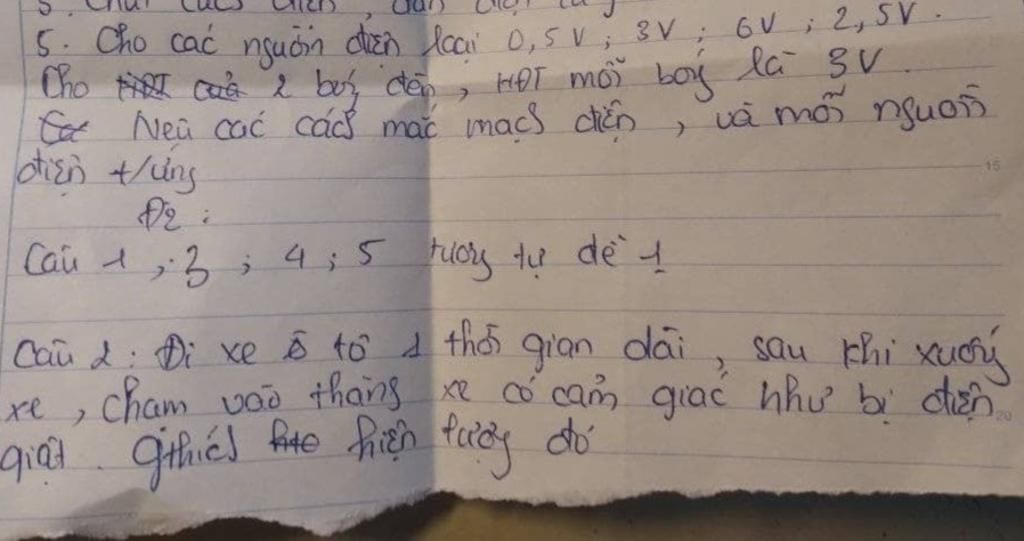 5. Cho các nguồn điện loại 0,5V; 3V; 6V; 2,5V.
Cho 2 bóng đèn, HĐT mỗi bóng là 3V.
Nêu các cách mắc mạch điện, và mỗi nguồn
điện t/ứng
Đ2:
Câu 1; 3; 4; 5 tương tự đề 1
Câu 2: Đi xe ô tô 1 thời gian dài, sau khi xuống
xe, chạm vào thành xe có cảm giác như bị điện
giật. Gthích hiện tượng đó
15
20